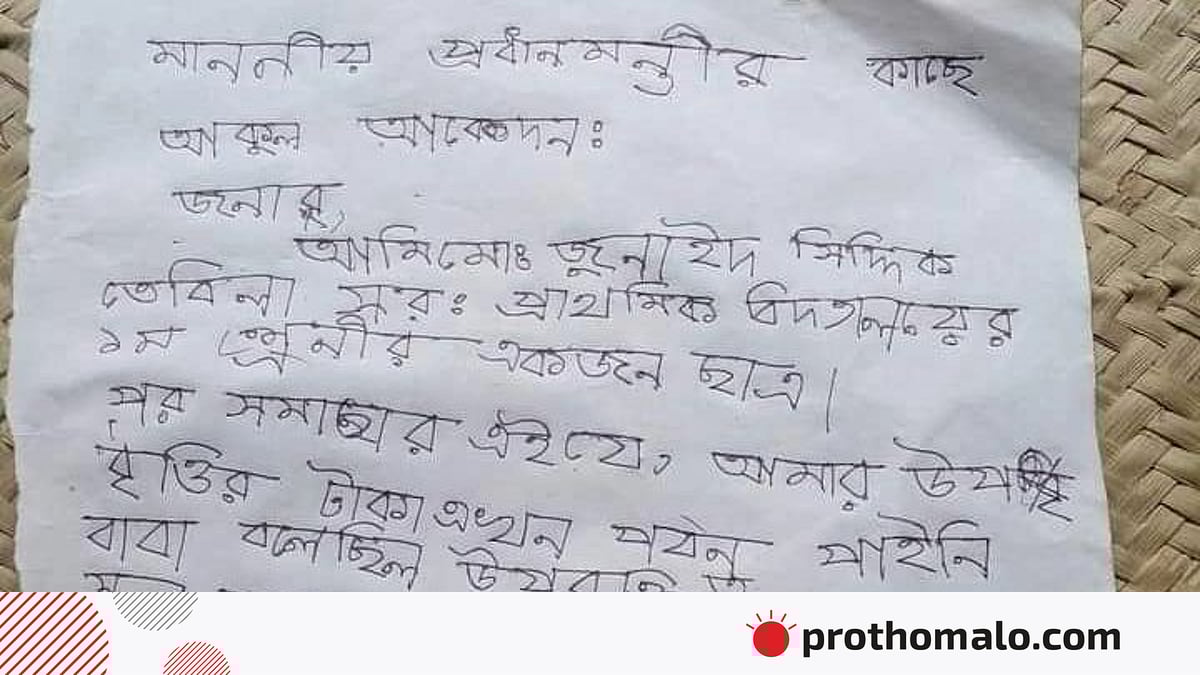 মাননীয় প্রধানমন্ত্রীর কাছে
আকুল আবেদন:
জনাব,
আমি মোঃ জুনাইদ সিদ্দিক
তেবিলা সর: প্রাথমিক বিদ্যালয়ের
১ম শ্রেনীর একজন ছাত্র।
পর সমাচার এইযে, আমার উপ
বৃত্তির টাকা এখন পর্যন্ত পাইনি
বাবা বলেছিল উপবৃত্তি
prothomalo.com